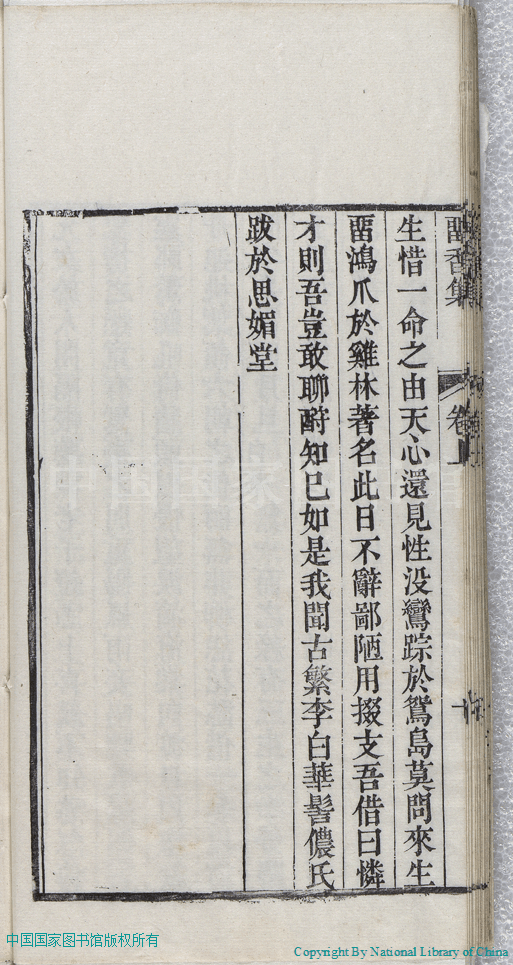 畱香集 卷上
生惜一命之由天心還見性没鸞踪於鴛島莫問來生
畱鴻爪於雞林著名此日不辭鄙陋用掇支吾借曰憐
才則吾豈敢聊酹知已如是我聞古繁李白華髻儂氏
跋於思媚堂
中国国家图书馆
中国国家图书馆版权所有
Copyright By National Library of China